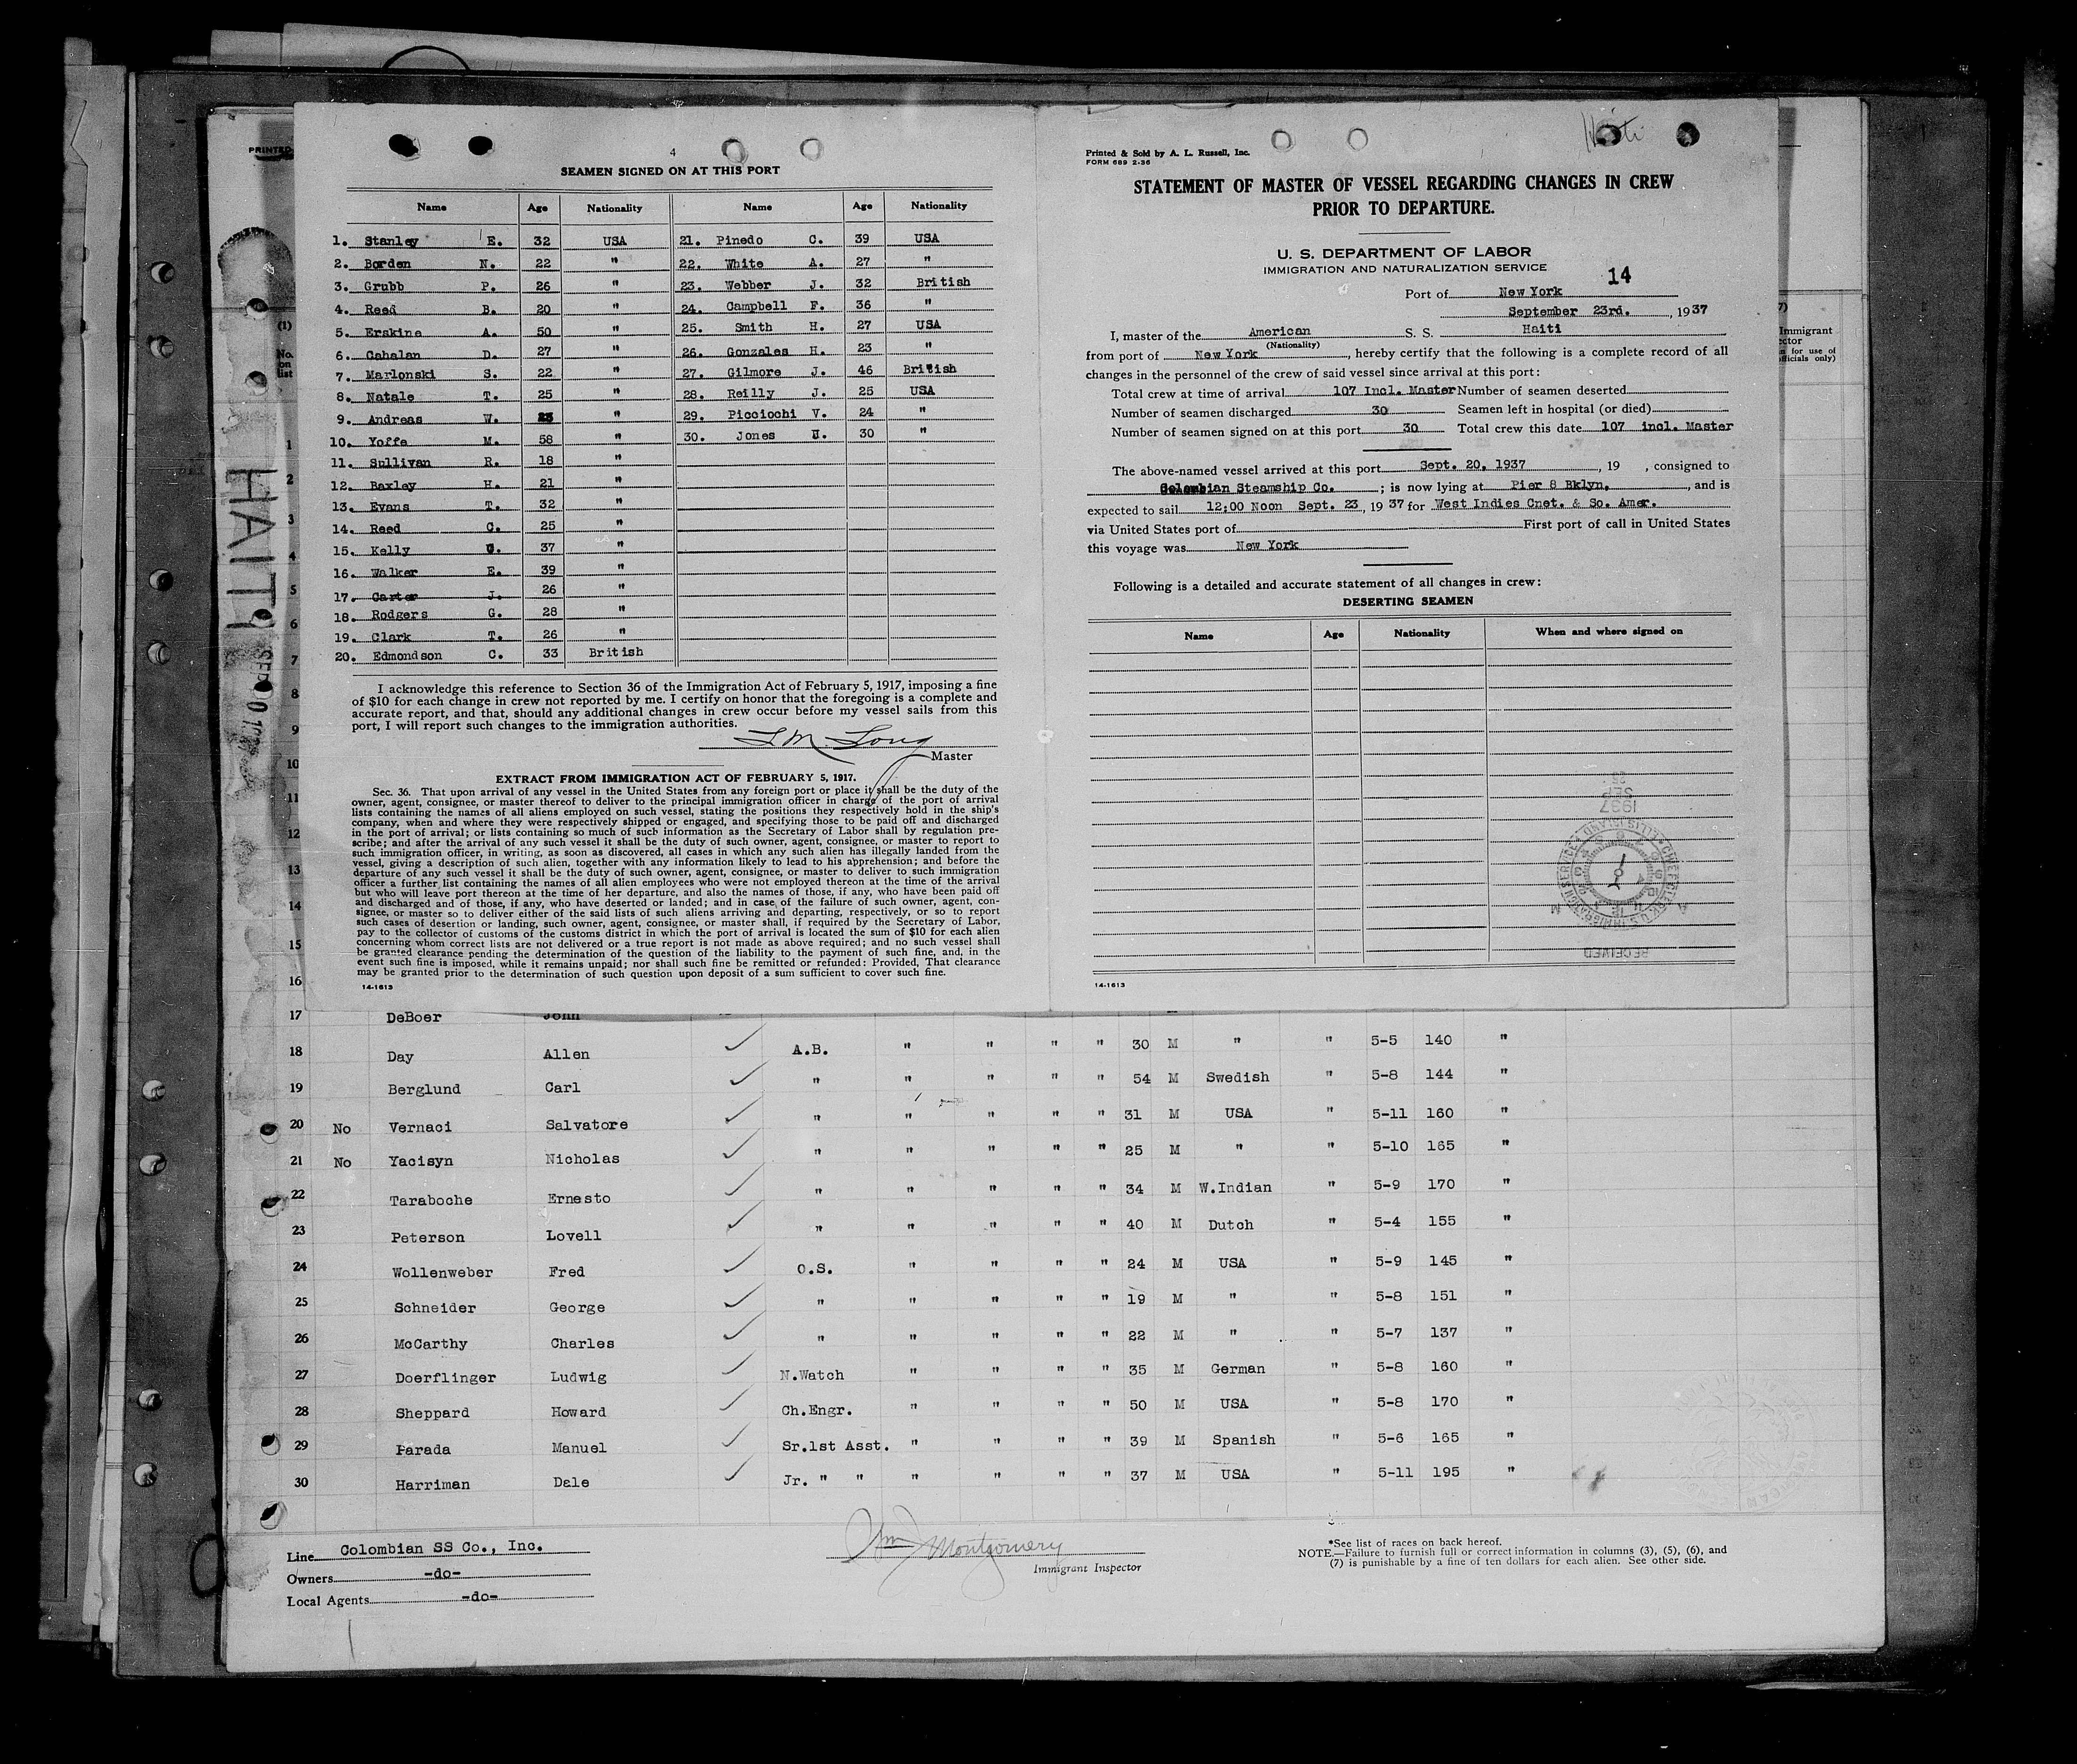 4
SEAMEN SIGNED ON AT THIS PORT
Name Age Nationality Name Age Nationality
1. Stanley E. 32 USA 21. Pinedo C. 39 USA
2. Borden N. 22 " 22. White A. 27 "
3. Grubb P. 26 " 23. Webber J. 32 British
4. Reed B. 20 " 24. Campbell F. 36 "
5. Erskine A. 50 " 25. Smith H. 27 USA
6. Cahalan D. 27 " 26. Gonzales H. 23 "
7. Marlonski S. 22 " 27. Gilmore J. 46 British
8. Natale T. 25 " 28. Reilly J. 25 USA
9. Andreas W. " 29. Picciochi V. 24 "
10. Yoffe M. 58 " 30. Jones 30 "
11. Sullivan R. 18 "
12. Baxley H. 21 "
13. Evans T. 32 "
14. Reed C. 25 "
15. Kelly 37 "
16. Walker E. 39 "
17. Carter J. 26 "
18. Rodgers G. 28 "
19. Clark T. 26 "
20. Edmondson C. 33 British
I acknowledge this reference to Section 36 of the Immigration Act of February 5, 1917, imposing a fine
of $10 for each change in crew not reported by me. I certify on honor that the foregoing is a complete and
accurate report, and that, should any additional changes in crew occur before my vessel sails from this
port, I will report such changes to the immigration authorities.
L M Long
Master
EXTRACT FROM IMMIGRATION ACT OF FEBRUARY 5, 1917.
Sec. 36. That upon arrival of any vessel in the United States from any foreign port or place it shall be the duty of the
owner, agent, consignee, or master thereof to deliver to the principal immigration officer in charge of the port of arrival
lists containing the names of all aliens employed on such vessel, stating the positions they respectively hold in the ship's
company, when and where they were respectively shipped or engaged, and specifying those to be paid off and discharged
in the port of arrival; or lists containing so much of such information as the Secretary of Labor shall by regulation pre-
scribe; and after the arrival of any such vessel it shall be the duty of such owner, agent, consignee, or master to report to
such immigration officer, in writing, as soon as discovered, all cases in which any such alien has illegally landed from the
vessel, giving a description of such alien, together with any information likely to lead to his apprehension; and before the
departure of any such vessel it shall be the duty of such owner, agent, consignee, or master to deliver to such immigration
officer a further list containing the names of all alien employees who were not employed thereon at the time of the arrival
but who will leave port thereon at the time of her departure, and also the names of those, if any, who have been paid off
and discharged and of those, if any, who have deserted or landed; and in case of the failure of such owner, agent, con-
signee, or master so to deliver either of the said lists of such aliens arriving and departing, respectively, or so to report
such cases of desertion or landing, such owner, agent, consignee, or master shall, if required by the Secretary of Labor,
pay to the collector of customs of the customs district in which the port of arrival is located the sum of $10 for each alien
concerning whom correct lists are not delivered or a true report is not made as above required; and no such vessel shall
be granted clearance pending the determination of the question of the liability to the payment of such fine, and, in the
event such fine is imposed, while it remains unpaid; nor shall such fine be remitted or refunded: Provided, That clearance
may be granted prior to the determination of such question upon deposit of a sum sufficient to cover such fine.
14-1613
Haiti
Printed & Sold by A. L. Russell, Inc.
FORM 689 2-36
STATEMENT OF MASTER OF VESSEL REGARDING CHANGES IN CREW
PRIOR TO DEPARTURE.
U. S. DEPARTMENT OF LABOR
IMMIGRATION AND NATURALIZATION SERVICE
14
Port of New York
September 23rd., 1937
I, master of the American S. S. Haiti
(Nationality)
from port of New York, hereby certify that the following is a complete record of all
changes in the personnel of the crew of said vessel since arrival at this port:
Total crew at time of arrival 107 Incl. Master Number of seamen deserted
Number of seamen discharged 30 Seamen left in hospital (or died)
Number of seamen signed on at this port 30 Total crew this date 107 incl. Master
The above-named vessel arrived at this port Sept. 20, 1937, 19 , consigned to
Colombian Steamship Co. ; is now lying at Pier 8 Bklyn. , and is
expected to sail 12:00 Noon Sept. 23, 19 37 for West Indies Cnet. & So. Amer.
via United States port of First port of call in United States
this voyage was New York
Following is a detailed and accurate statement of all changes in crew:
DESERTING SEAMEN
Name Age Nationality When and where signed on
1937
SEP
RECEIVED
14-1613
PRINTED
HAITI
(1)
No. on list
(7)
Immigrant
for use of
officials only)
1
2
3
4
5
6
7
8
9
10
11
12
13
14
15
16
17 DeBoer John
18 Day Allen A.B. " " " " 30 M " " 5-5 140 "
19 Berglund Carl " " " " " 54 M Swedish " 5-8 144 "
20 No Vernaci Salvatore " " " " " 31 M USA " 5-11 160 "
21 No Yacisyn Nicholas " " " " " 25 M " " 5-10 165 "
22 Taraboche Ernesto " " " " " 34 M W.Indian " 5-9 170 "
23 Peterson Lovell " " " " " 40 M Dutch " 5-4 155 "
24 Wollenweber Fred O.S. " " " " 24 M USA " 5-9 145 "
25 Schneider George " " " " " 19 M " " 5-8 151 "
26 McCarthy Charles " " " " " 22 M " " 5-7 137 "
27 Doerflinger Ludwig N.Watch " " " " 35 M German " 5-8 160 "
28 Sheppard Howard Ch.Engr. " " " " 50 M USA " 5-8 170 "
29 Parada Manuel Sr.1st Asst. " " " " 39 M Spanish " 5-6 165 "
30 Harriman Dale Jr. " " " " " " 37 M USA " 5-11 195 "
Line Colombian SS Co., Inc.
Owners -do-
Local Agents -do-
Wm Montgomery
Immigrant Inspector
*See list of races on back hereof.
NOTE.—Failure to furnish full or correct information in columns (3), (5), (6), and
(7) is punishable by a fine of ten dollars for each alien. See other side.